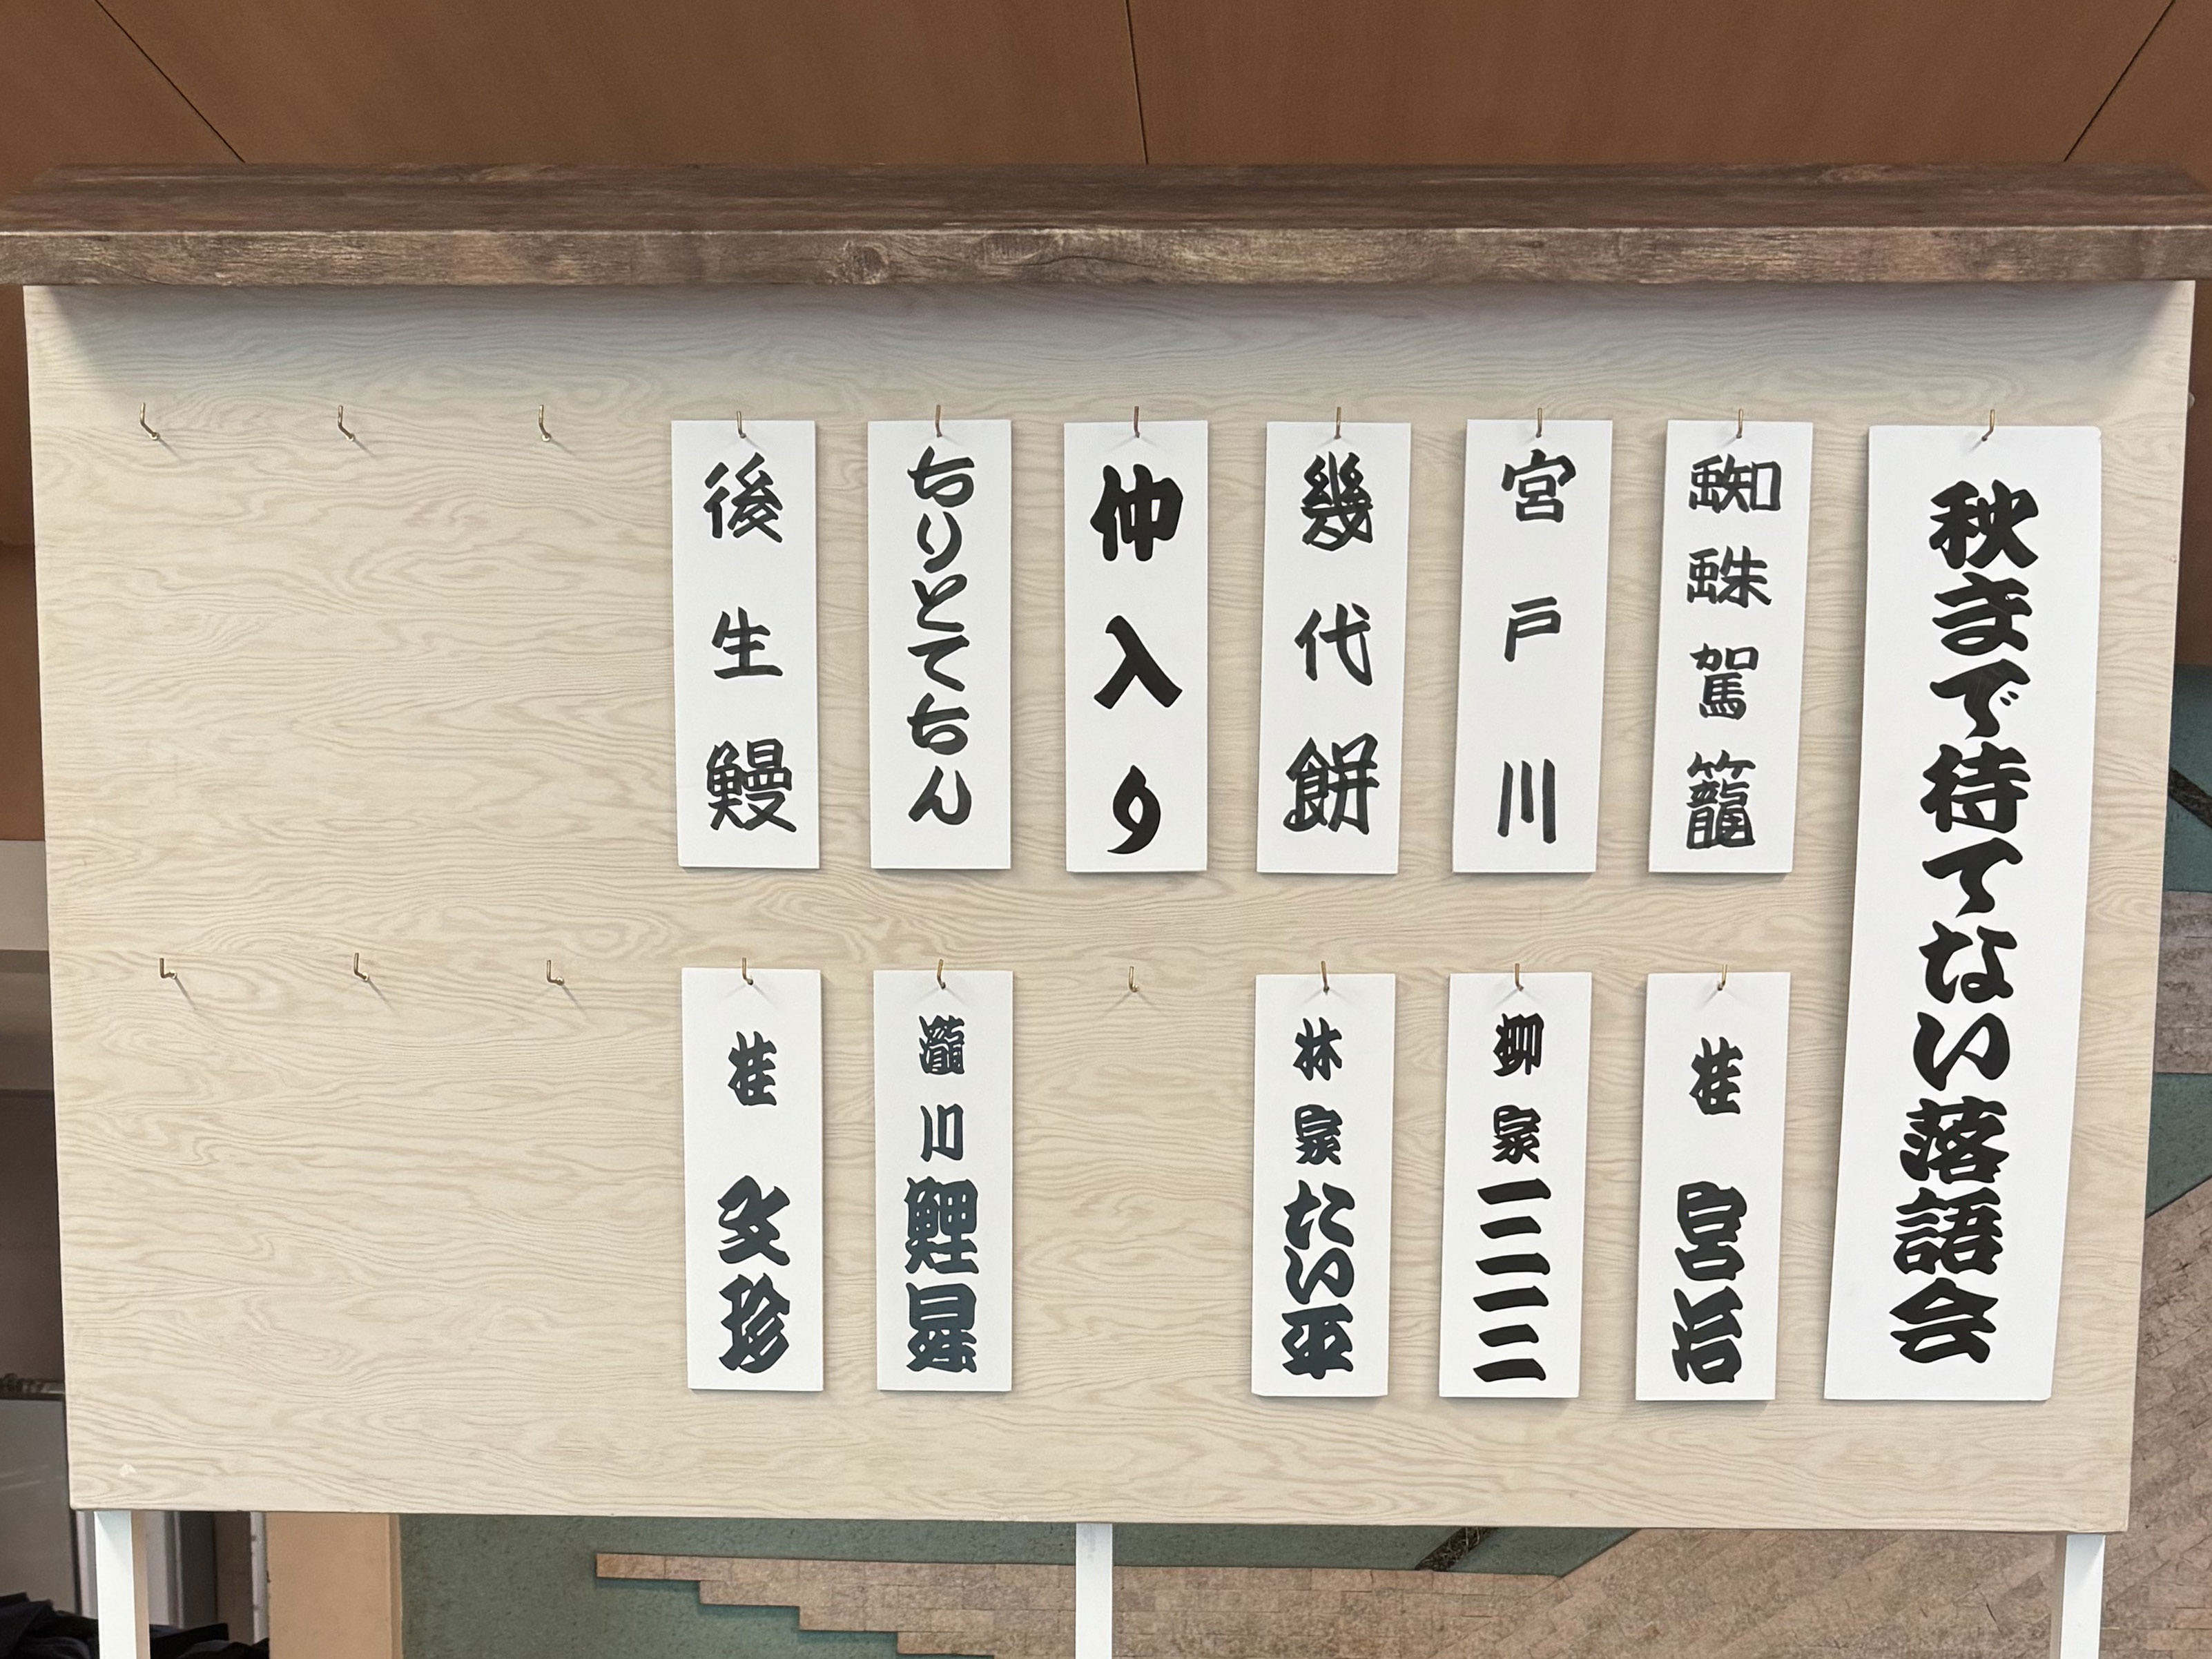 秋まで待てない落語会
蜘蛛駕籠
桂 宮治
宮戸川
柳家三三
幾代餅
林家たい平
仲入り
ちりとてちん
瀧川鯉昇
後生鰻
桂 文珍